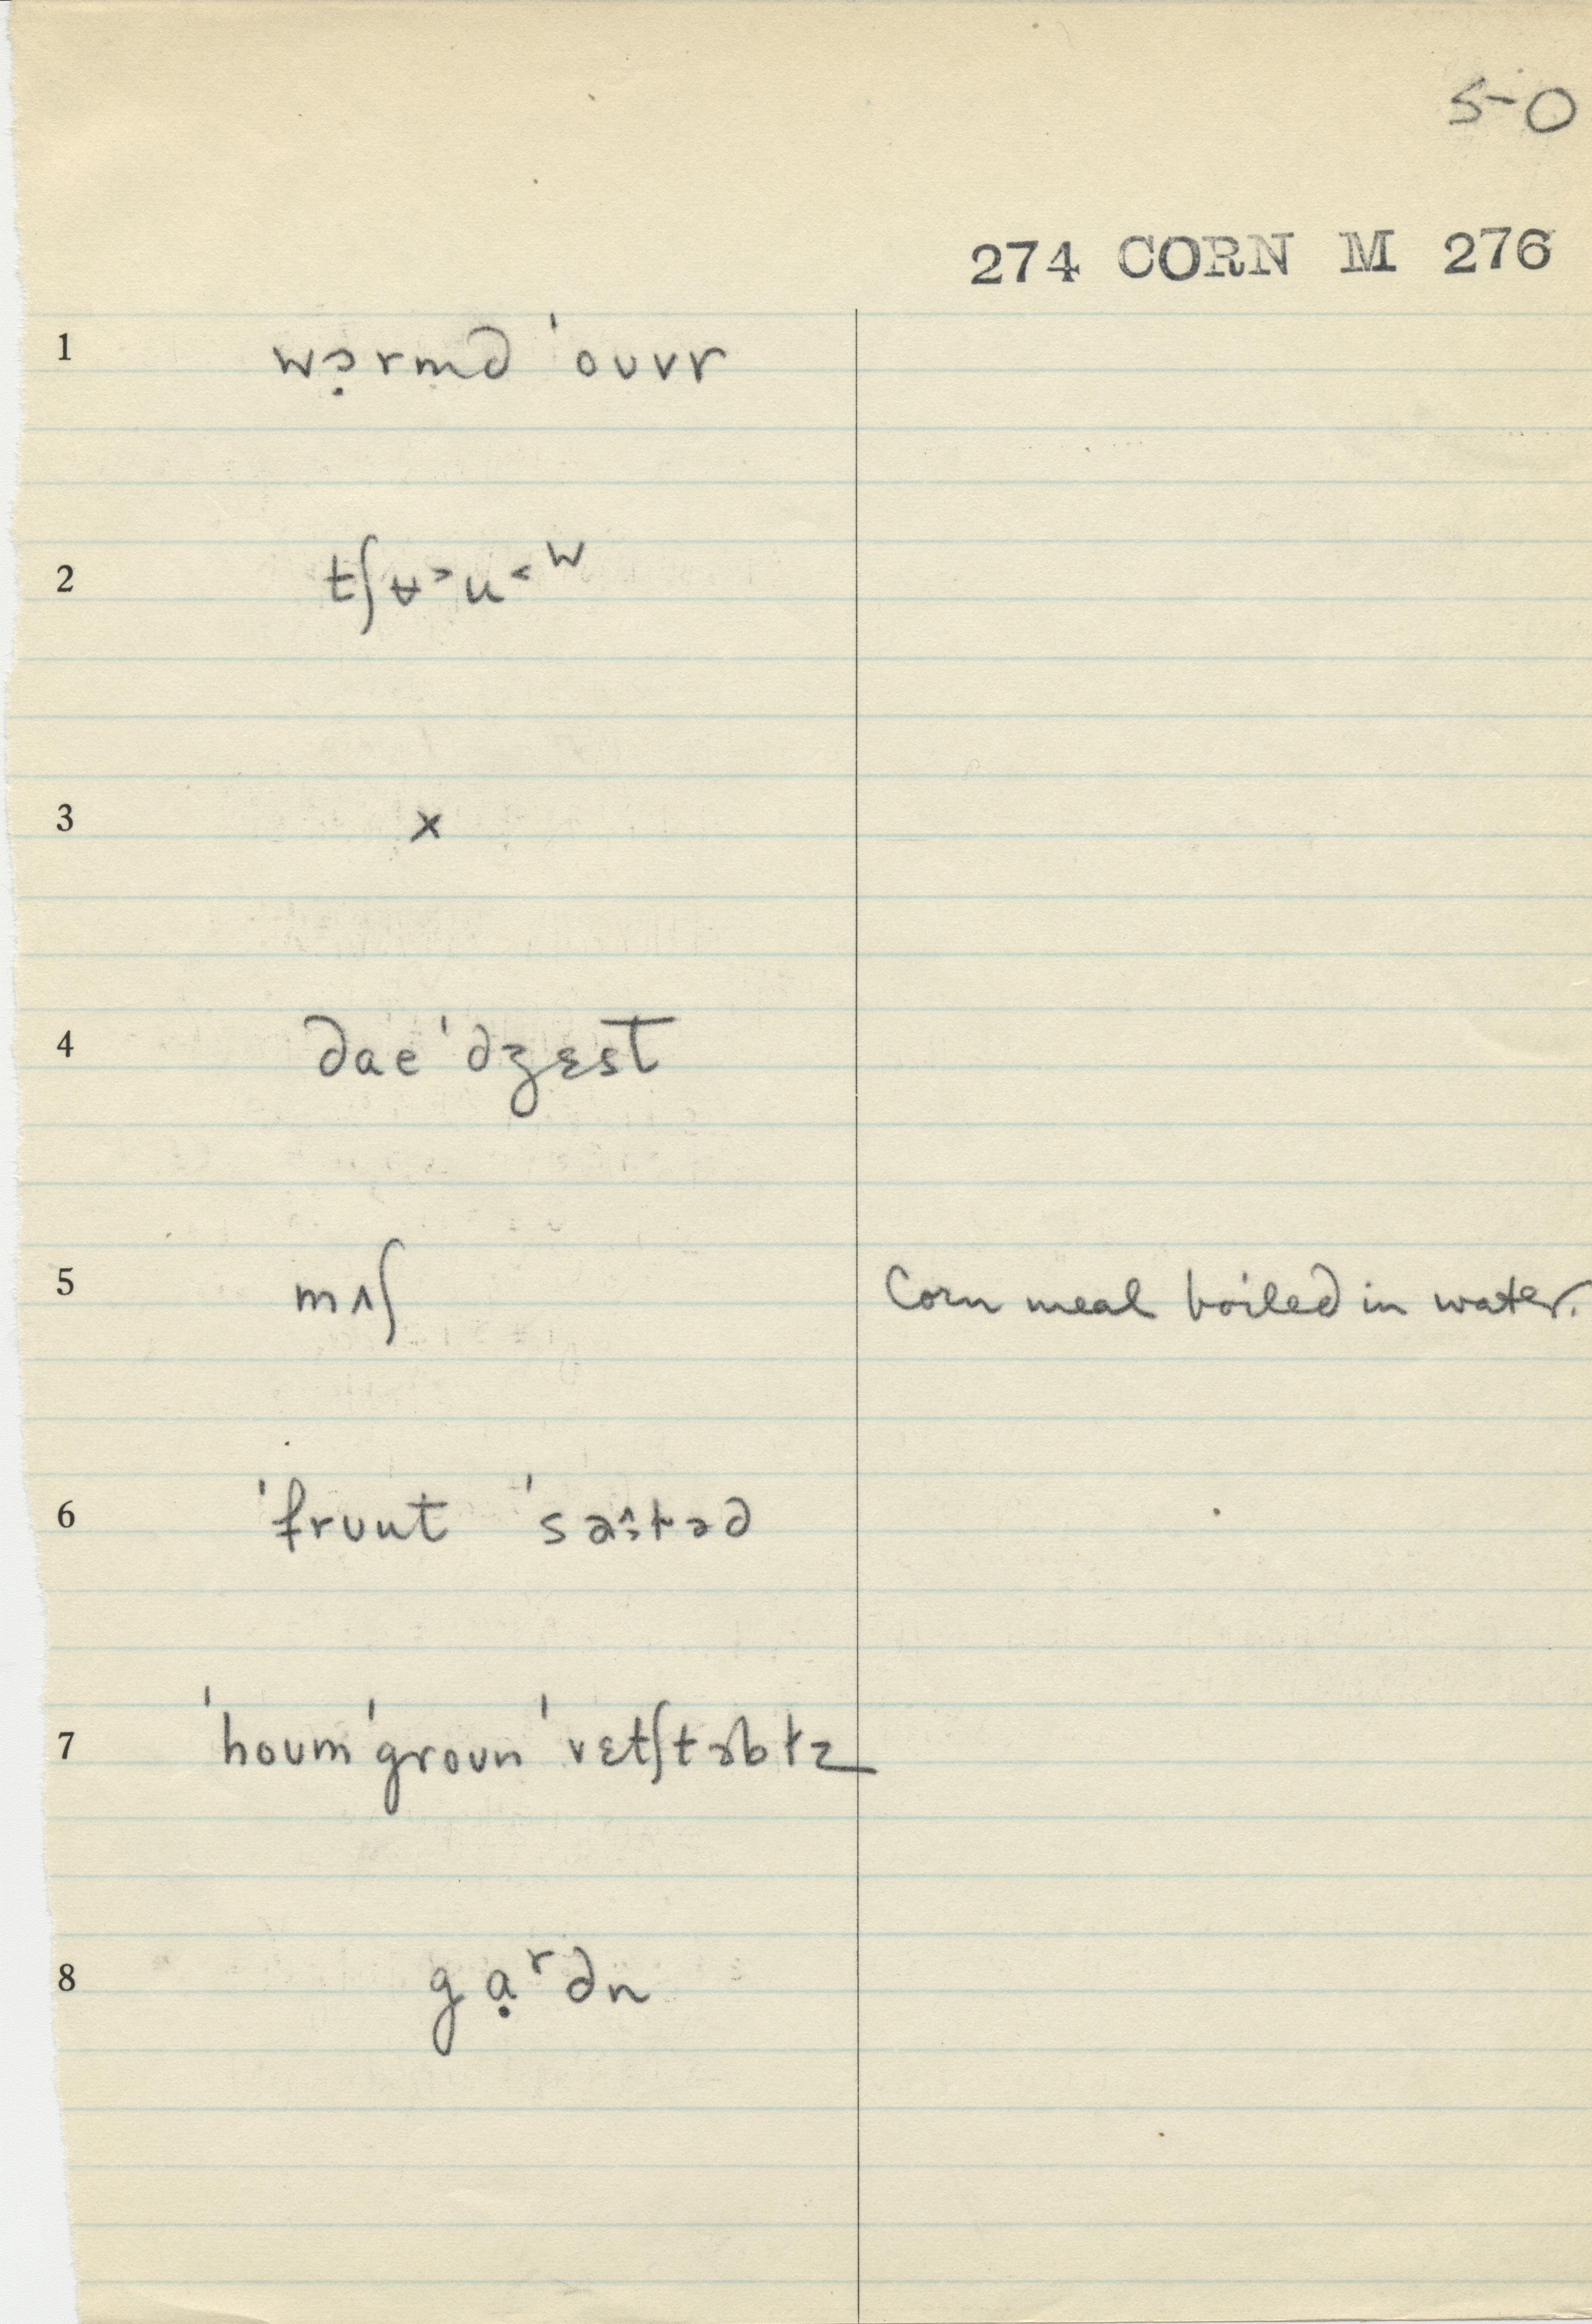 50
274 CORN M 276
1 wɔ̣rmd ˈoʊvr
2 tʃʉ˃u˂ʷ
3 x
4 daeˈdʒɛst
5 mʌʃ Corn meal boiled in water.
6 ˈfrʊut ˈsɑ^:ləd
7 ˈhoʊmˈgroʊn ˈvɛtʃtəblz
8 gạʳdn